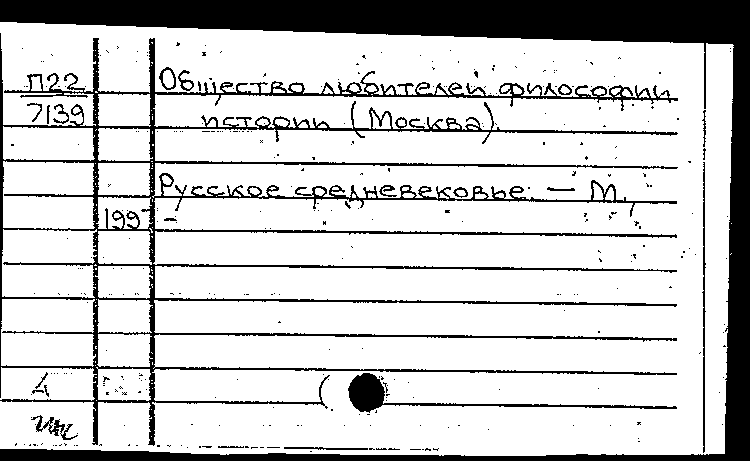 П22
7139
Общество любителей философии
истории (Москва).
Русское средневековье. — М.,
199 -